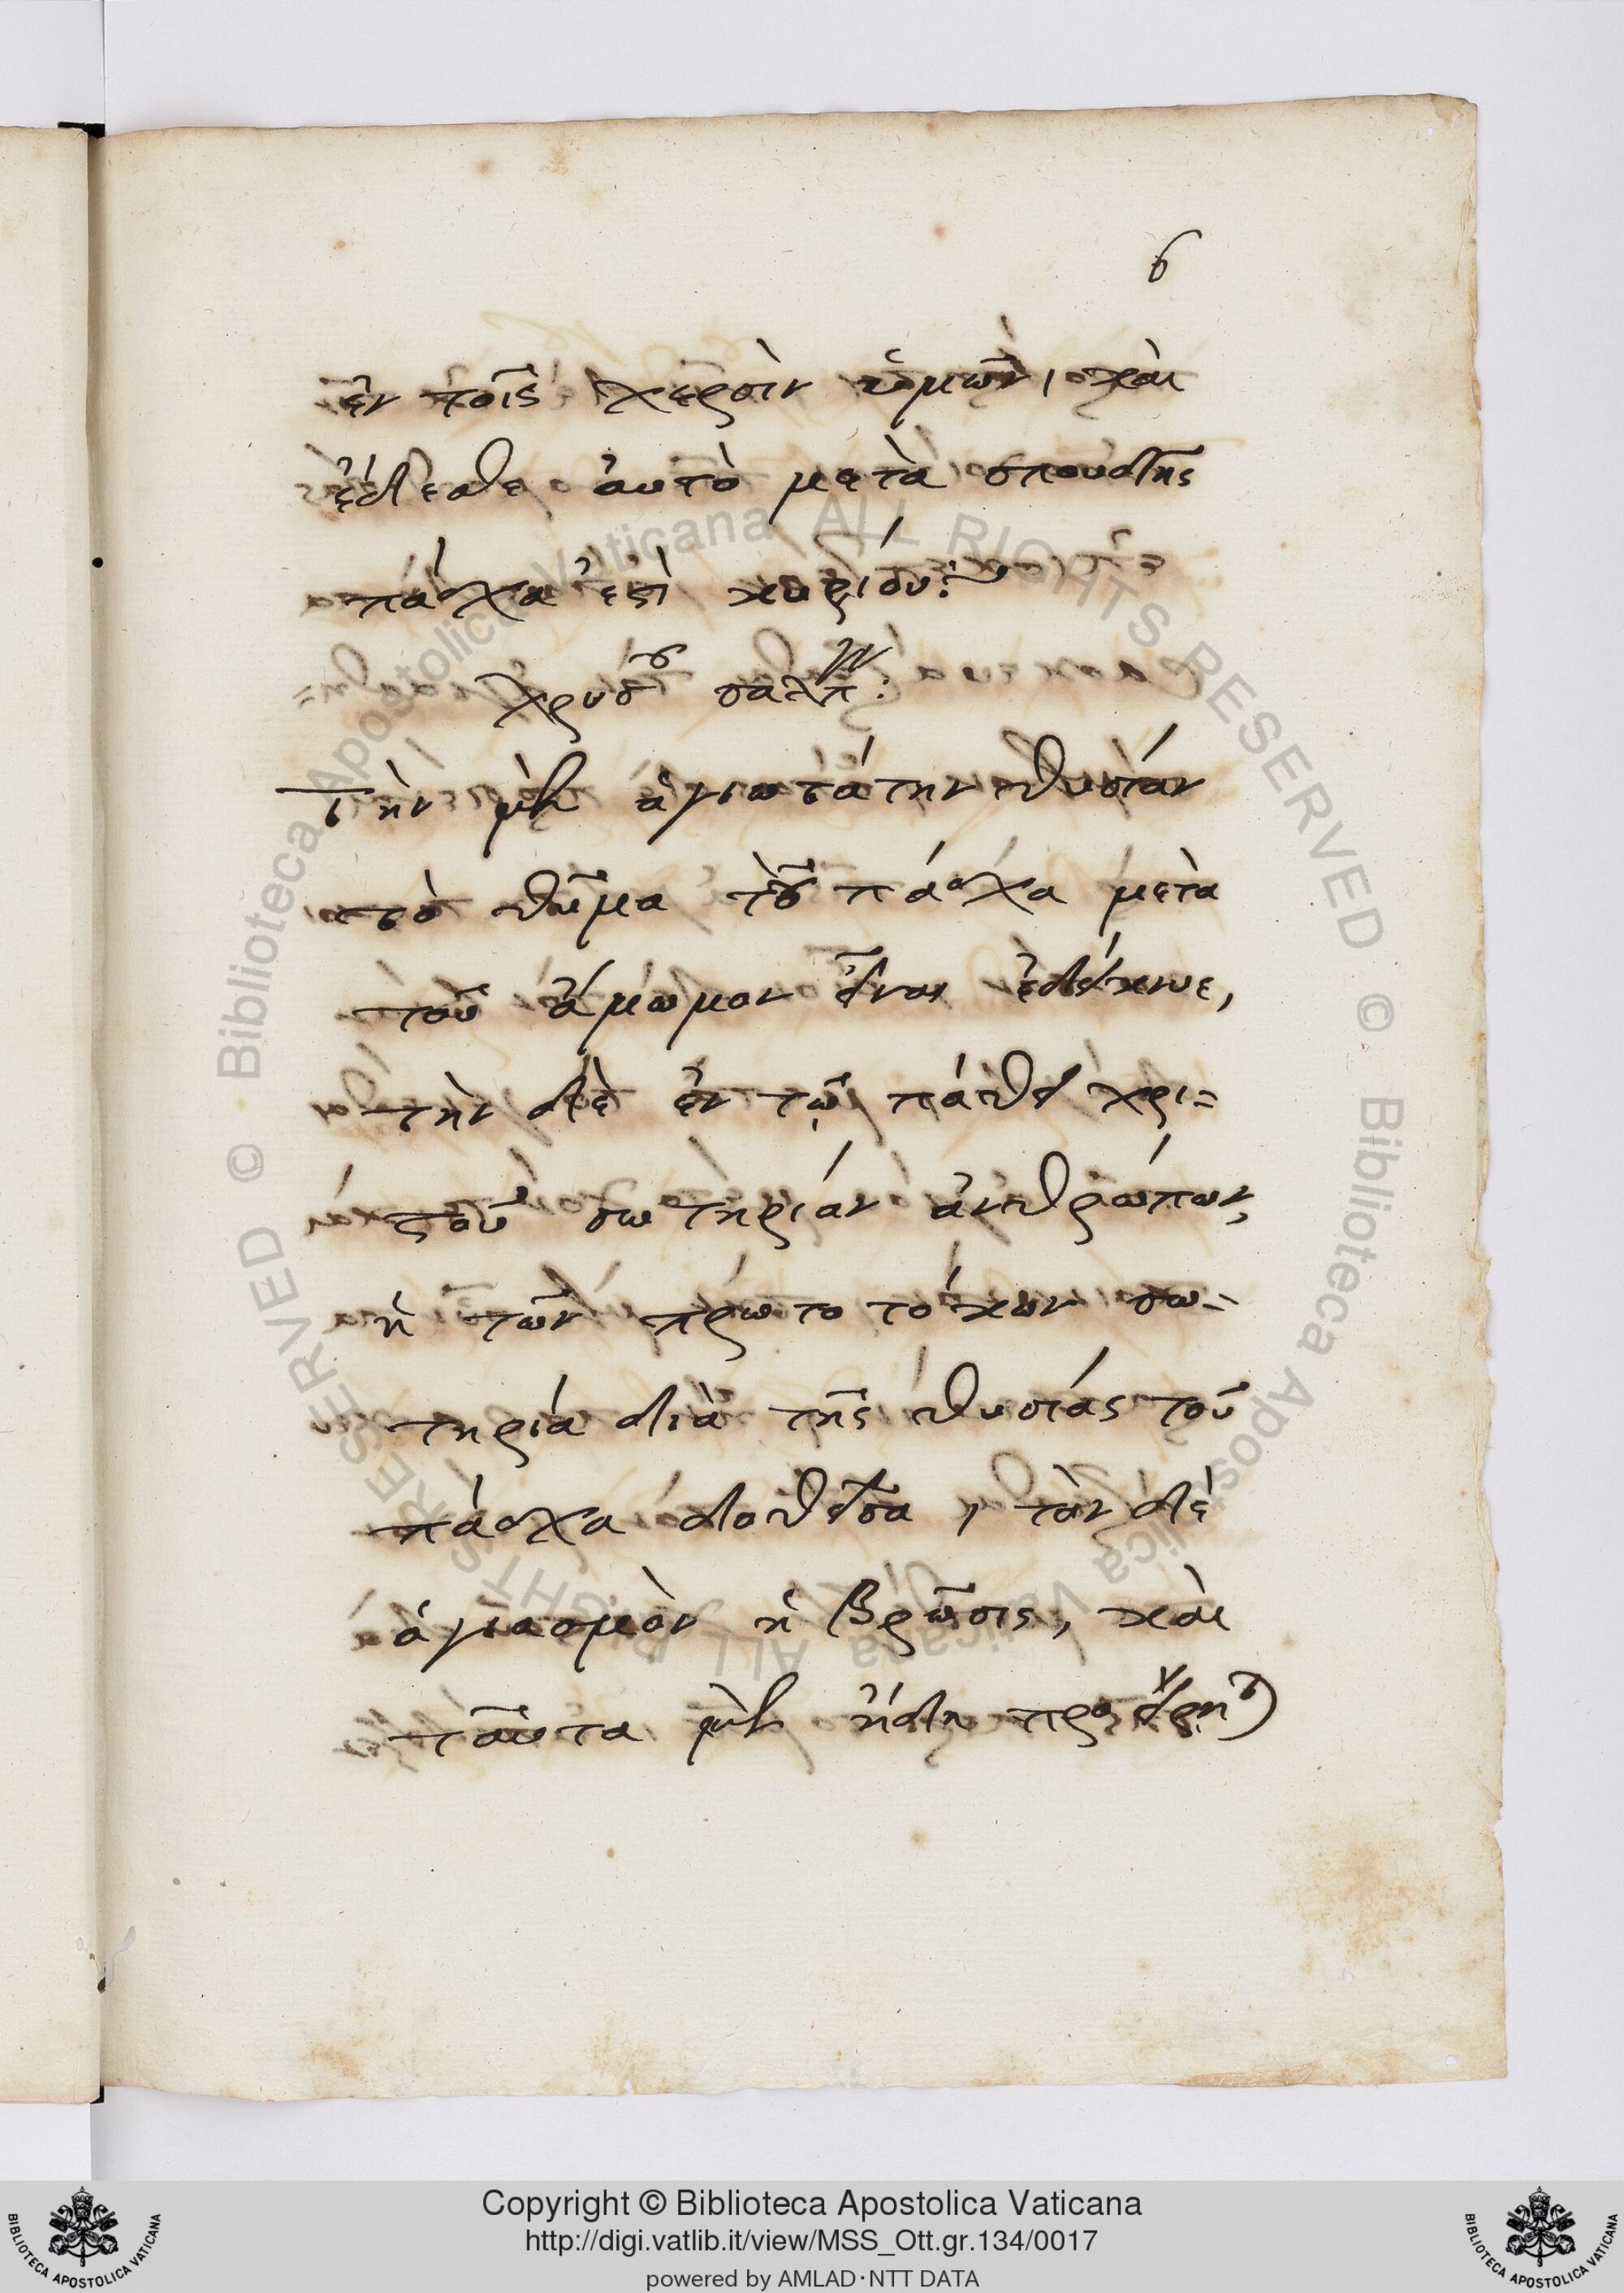 6
ἐν τοῖς χερσὶν ὑμῶν, καὶ
ἔδεσθε ἀυτὸ μετὰ σπουδῆς
πάσχα ἐστὶ κυρίου:~
Τὴν μὲν ἁγιωτάτην θυσίαν
τὸ θῦμα τοῦ πάσχα μετὰ
τοῦ ἄμωμον εἶναι ἐδείκνυε,
τὴν δὲ ἐν τῷ πάθει χρι=
στοῦ σωτηρίαν ἀνθρώπων,
ἡ τῶν πρωτοτόκων σω=
τηρία διὰ τῆς θυσίας τοῦ
πάσχα δοθεῖσα, τὸν δὲ
ἁγιασμὸν ἡ βρῶσις, καὶ
ταῦτα μὲν ἤδη προείρη)
Copyright © Biblioteca Apostolica Vaticana
http://digi.vatlib.it/view/MSS_Ott.gr.134/0017
powered by AMLAD·NTT DATA
BIBLIOTECA APOSTOLICA VATICANA
BIBLIOTECA APOSTOLICA VATICANA
© Biblioteca Apostolica Vaticana ALL RIGHTS RESERVED © Biblioteca Apostolica Vaticana ALL RIGHTS RESERVED